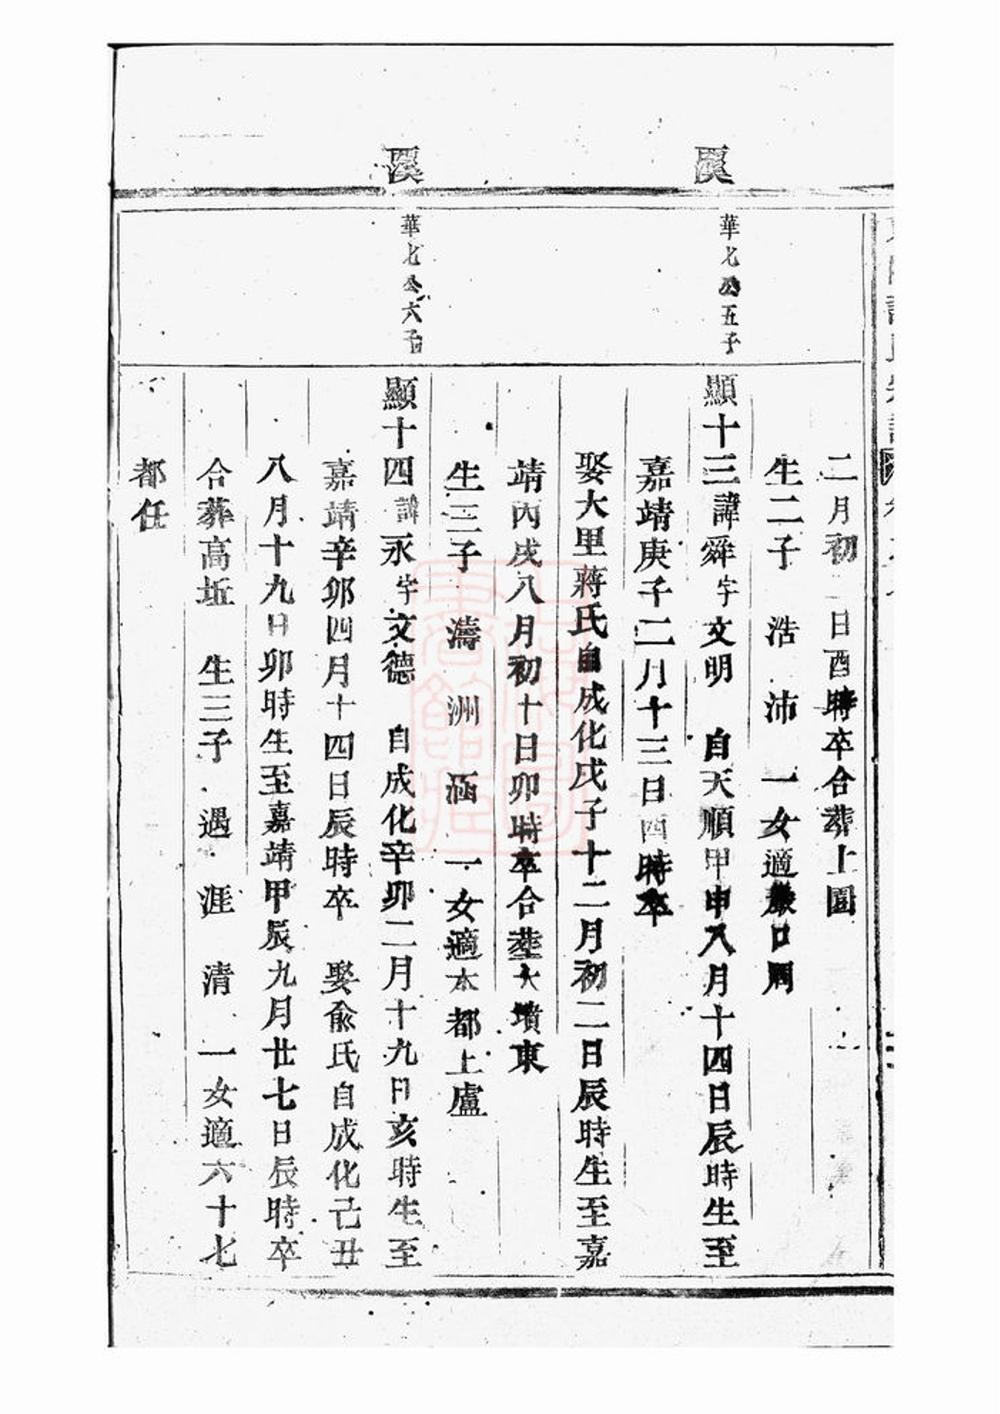 溪
華七公五子
二月初一日酉時卒合葬上園
生二子 浩 沛 一女適巖口周
顯十三諱舜字文明 自天順甲申八月十四日辰時生至
嘉靖庚子二月十三日酉時卒
娶大里蔣氏自成化戊子十二月初二日辰時生至嘉
靖丙戌八月初十日卯時卒合葬大墳東
生三子 濤 洲 涵 一女適本都上盧
溪
華七公六子
顯十四諱永字文德 自成化辛卯二月十九日亥時生至
嘉靖辛卯四月十四日辰時卒 娶俞氏自成化己丑
八月十九日卯時生至嘉靖甲辰九月廿七日辰時卒
合葬高坵 生三子 遇 涯 清 一女適六十七
都任